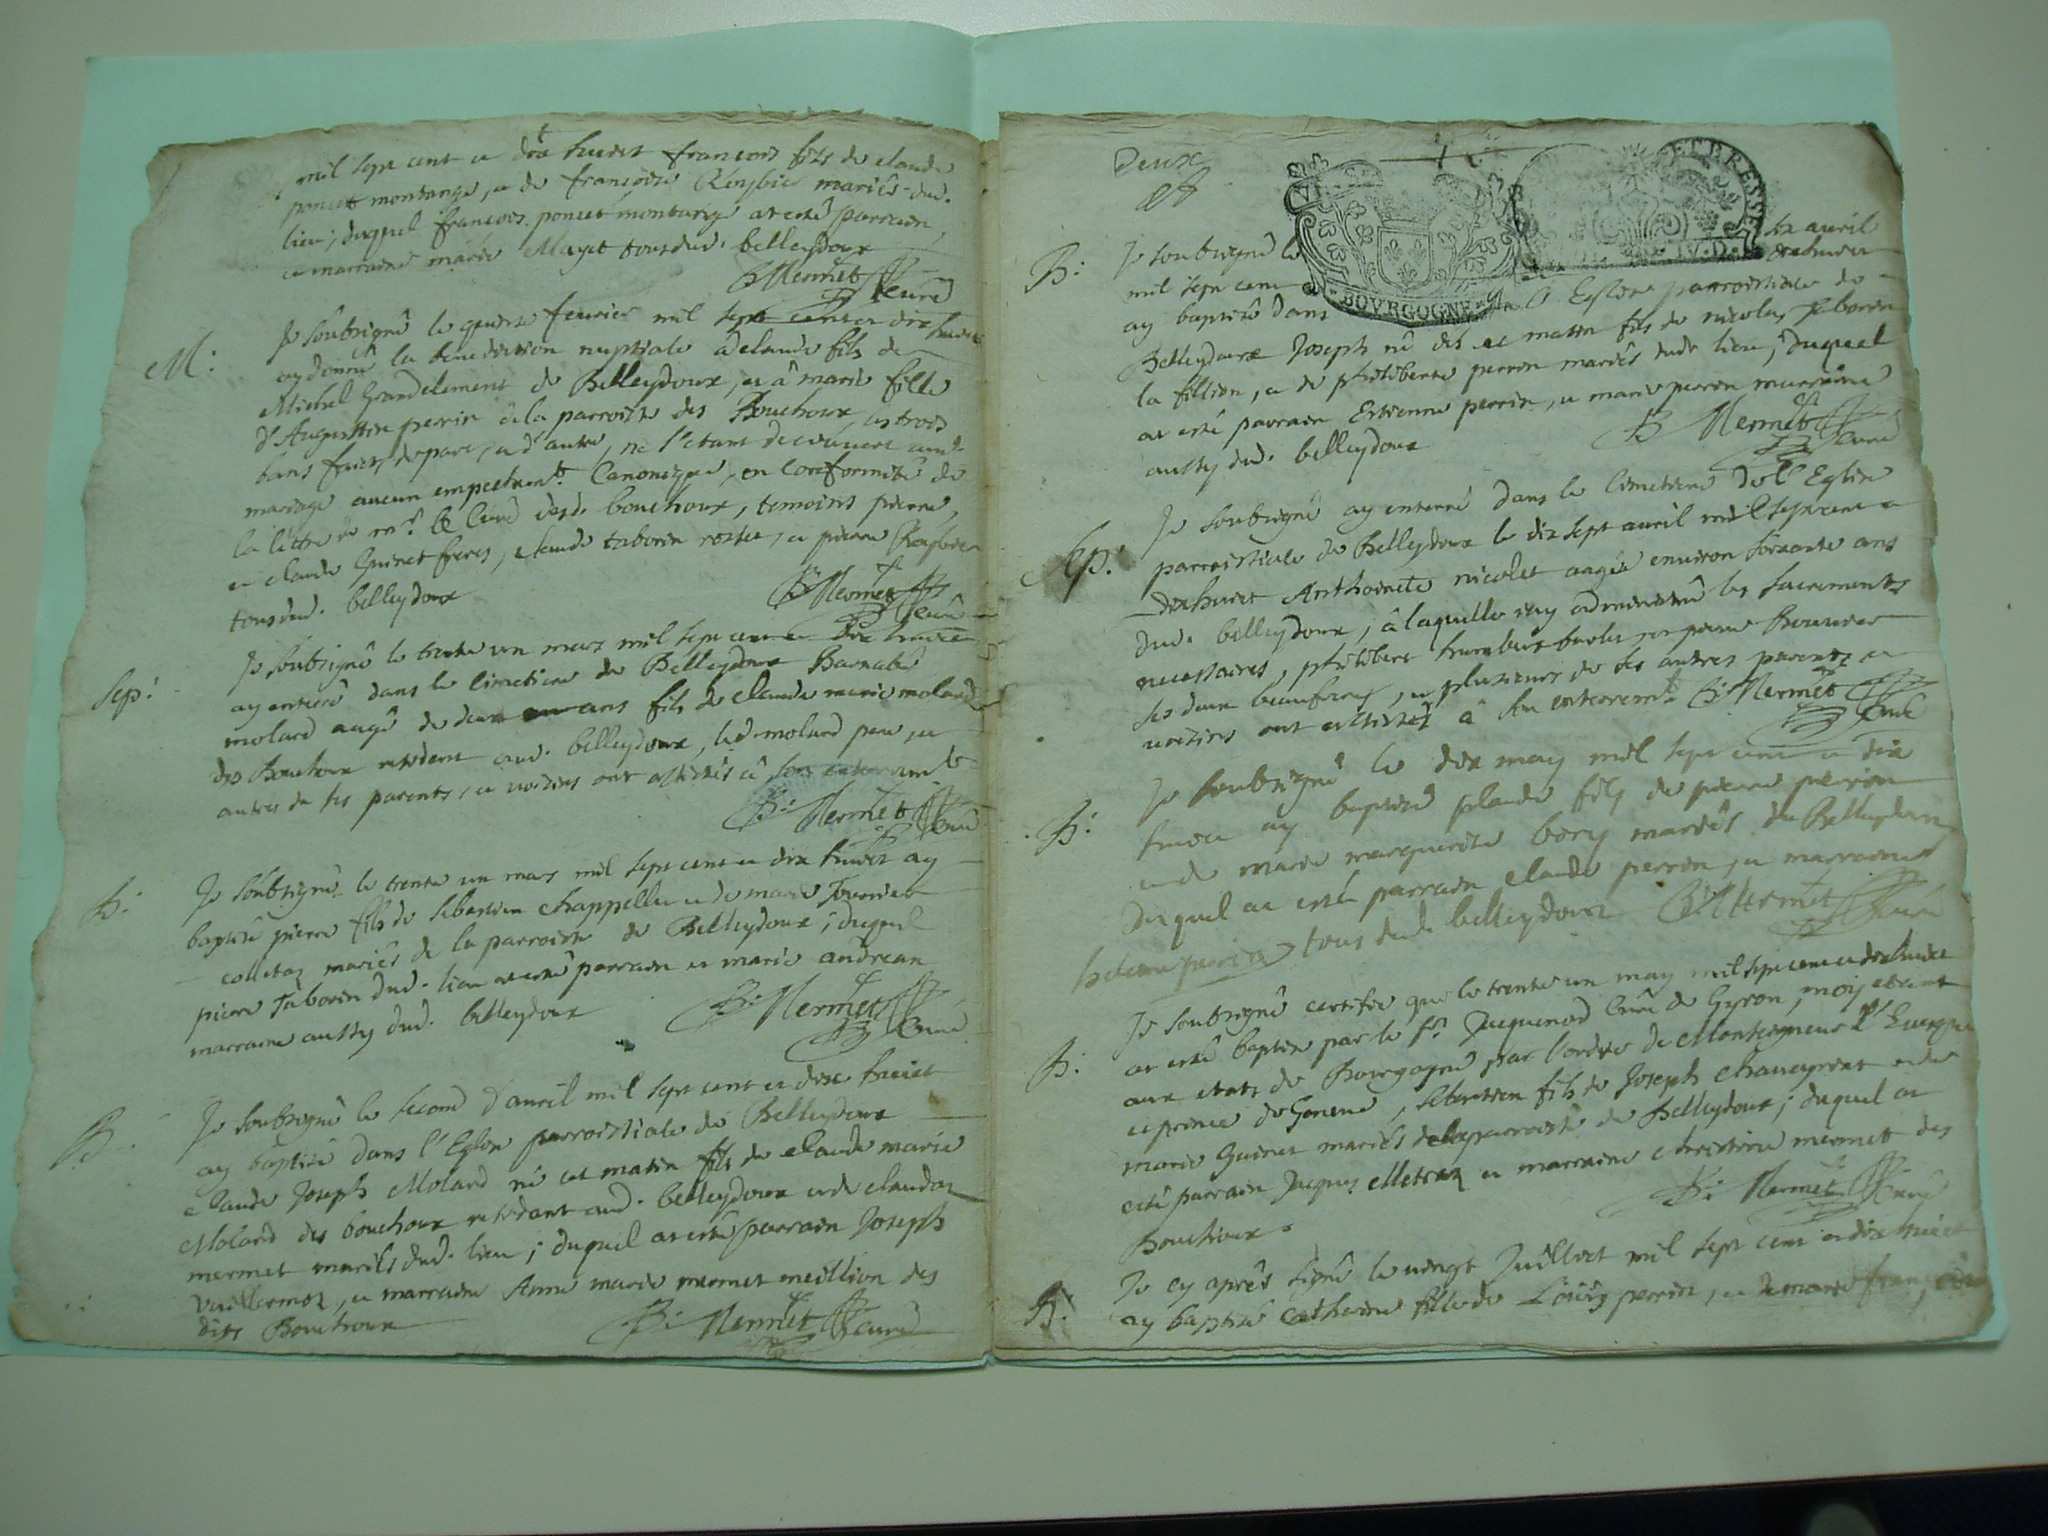 mil sept cent et dix huict francois fils de claude
poncet montange, et de françoise Reybier mariés dud.
lieu; duquel francois poncet montange at esté parrain,
et marraine marie Mayet tous dud. belleydoux
B. Mermet curé
M: Je soubsigné le quinze feurier mil sept cent et dix huict
ay donné la benediction nuptiale à claude fils de
Michel Grandclement de Belleydoux, et à marie fille
d'Augustin perrin de la parroisse des Bouchoux, les trois
bans faits de part, et d'autre, ne s'etant decouuert aud.
mariage aucun empechemt. Canonique, en conformité de
la lettre de mr. le Curé desd. bouchoux, temoins pierre,
et claude Guinet freres, claude taborin rostet, et pierre Reybier
tous dud. belleydoux
B. Mermet curé
Sep: Je soubsigné le trente un mars mil sept cent et dix huict
ay enterré dans le cimetiere de Belleydoux Barnabé
molard aagé de deux ans fils de claude marie molard
des Bouchoux residant aud. belleydoux, led. molard pere, et
autres de ses parents, et uoisins ont assistés à son enterremt.
B: Mermet curé
B: Je soubsigné le trente un mars mil sept cent et dix huict ay
baptisé pierre fils de sebastien chappellu et de marie Tournier
collitaz mariés de la parroisse de Belleydoux; duquel
pierre Taborin dud. lieu at esté parrain et marie andrean
marraine aussy dud. belleydoux
B: Mermet curé
B: Je soubsigné le second d'auril mil sept cent et dix huict
ay baptisé dans l'Eglise parroissiale de Belleydoux
claude Joseph Molard né cet matin fils de claude marie
Molard des bouchoux residant aud. belleydoux et de claudaz
mermet mariés dud. lieu; duquel at esté parrain Joseph
Vuillermoz, et marraine Anne marie mermet meillion des
dits Bouchoux
B: Mermet curé
Deux
ET BRESSE
IV. D.
BOVRGOGNE
B: Je soubsigné le six auril
mil sept cent dix huict
ay baptisé dans l'Eglise parroissiale de
Belleydoux Joseph né cet matin fils de nicolas taborin
la fillion, et de philiberte perron mariés dud. lieu; duquel
at esté parrain Estienne perrin, et marie perron marraine
aussy dud. belleydoux
B Mermet curé
Sep: Je soubsigné ay enterré dans le Cimetiere de l'Eglise
parroissiale de Belleydoux le dix sept auril mil sept cent et
dix huict Anthoinete nicolet aagée enuiron soixante ans
dud. belleydoux, à laquelle iay administré les sacrements
necessaires, philibert et pierre Bouuier
ses deux beaufreres, et plusieurs de ses autres parents et
uoisins ont assistés à son enterremt. B: Mermet curé
B: Je soubsigné le dix may mil sept cent et dix
huict ay baptisé claude fils de pierre perron
et de marie marguerite bory mariés de Belleydoux
duquel at esté parrain claude perron, et marraine
tous dud. belleydoux B: Mermet curé
B: Je soubsigné certifie que le trente un may mil sept cent et dix huict
at esté baptisé par le sr. Jacquenod Curé de Gyron, moy etant
aux etats de Bourgogne par l'ordre de Monseigneur l'Eueque
et prince de Geneue, sebastien fils de Joseph chaneyriat et de
marie Guinet mariés de la parroisse de Belleydoux; duquel at
esté parrain Jacques Metraz et marraine christine mermet des
Bouchoux.
B: Mermet curé
B: Je cy aprés signé le uingt Juillet mil sept cent et dix huict
ay baptisé catherine fille de Loüis perrin, et de marie françoise